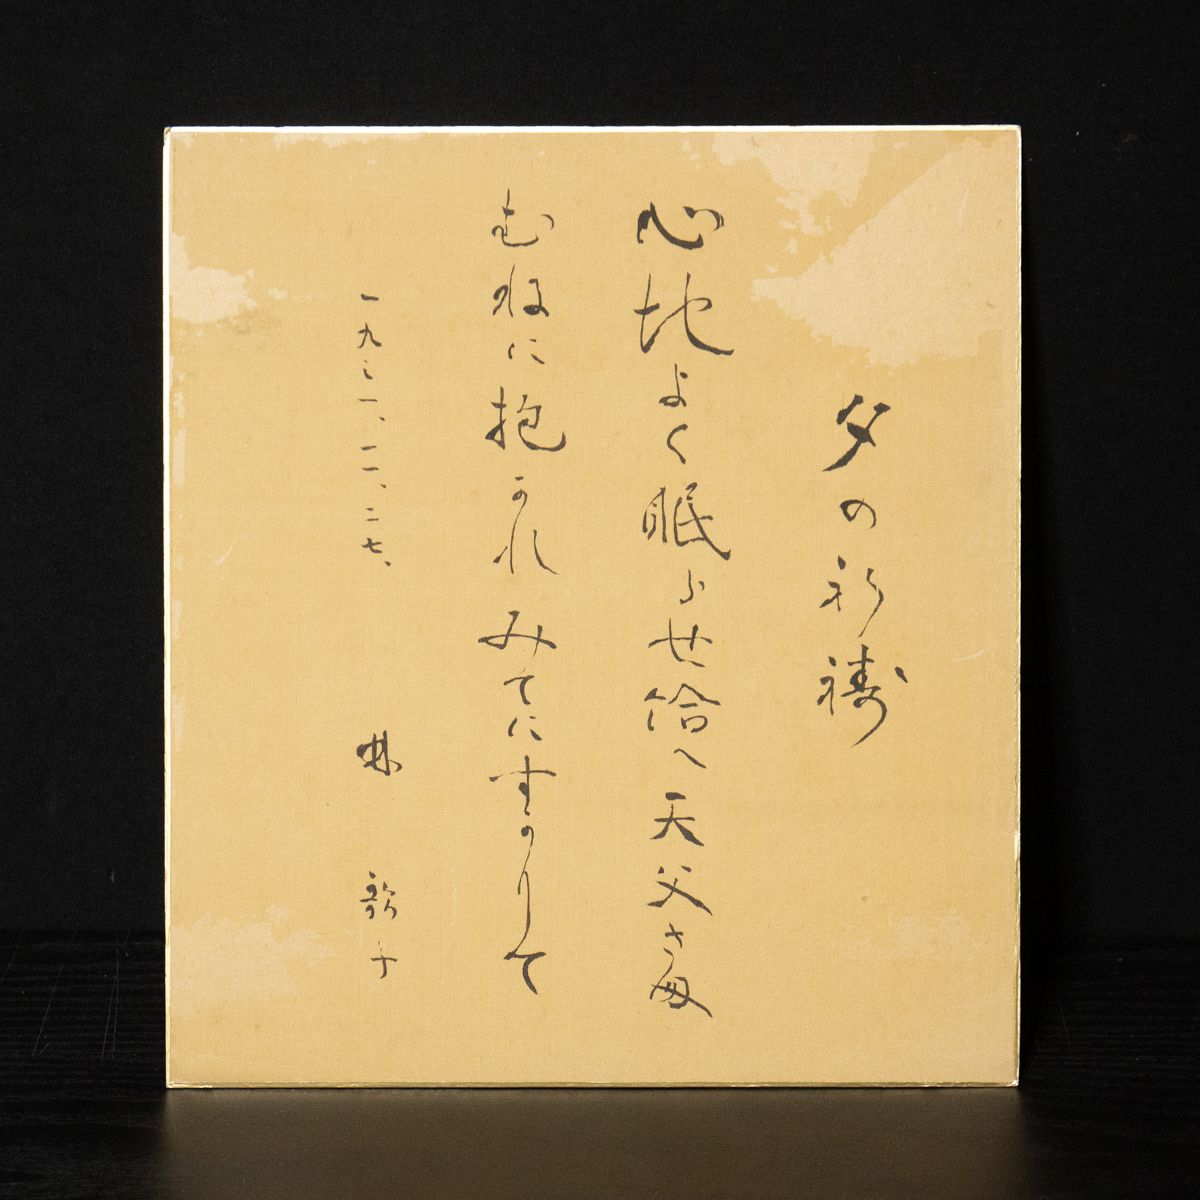 夕の祈祷
心地よく眠らせ給へ天父さま
むねに抱かれみてにすがりて
一九三一、一一、二七、
林 歌子